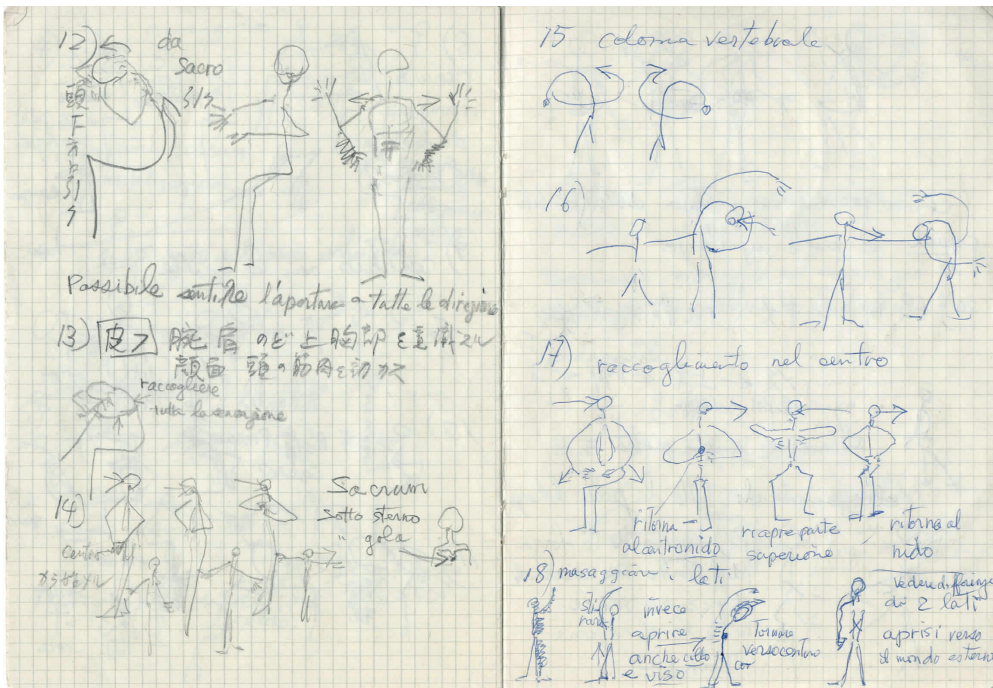 12)
da
Sacro
引ク
頭
下方ニ
引
ク
Possibile sentire l'apertura a tutte le direzioni
13) 皮フ 腕 肩 のど 上胸部 を意識スル
顔面 頭の筋肉を動カス
raccogliere
tutta la sensazione
14)
Centro
カラはなれル
Sacrum
sotto sterno
" gola
15 colonna vertebrale
16)
17) raccoglimento nel centro
ritorna
al centro nido
ricopre parte
superiore
ritorna al
nido
18) massaggiare i lati
stirare
invece
aprire
anche collo
e viso
Tornare
verso centro
vedere differenza
di 2 lati
aprirsi verso
il mondo esterno